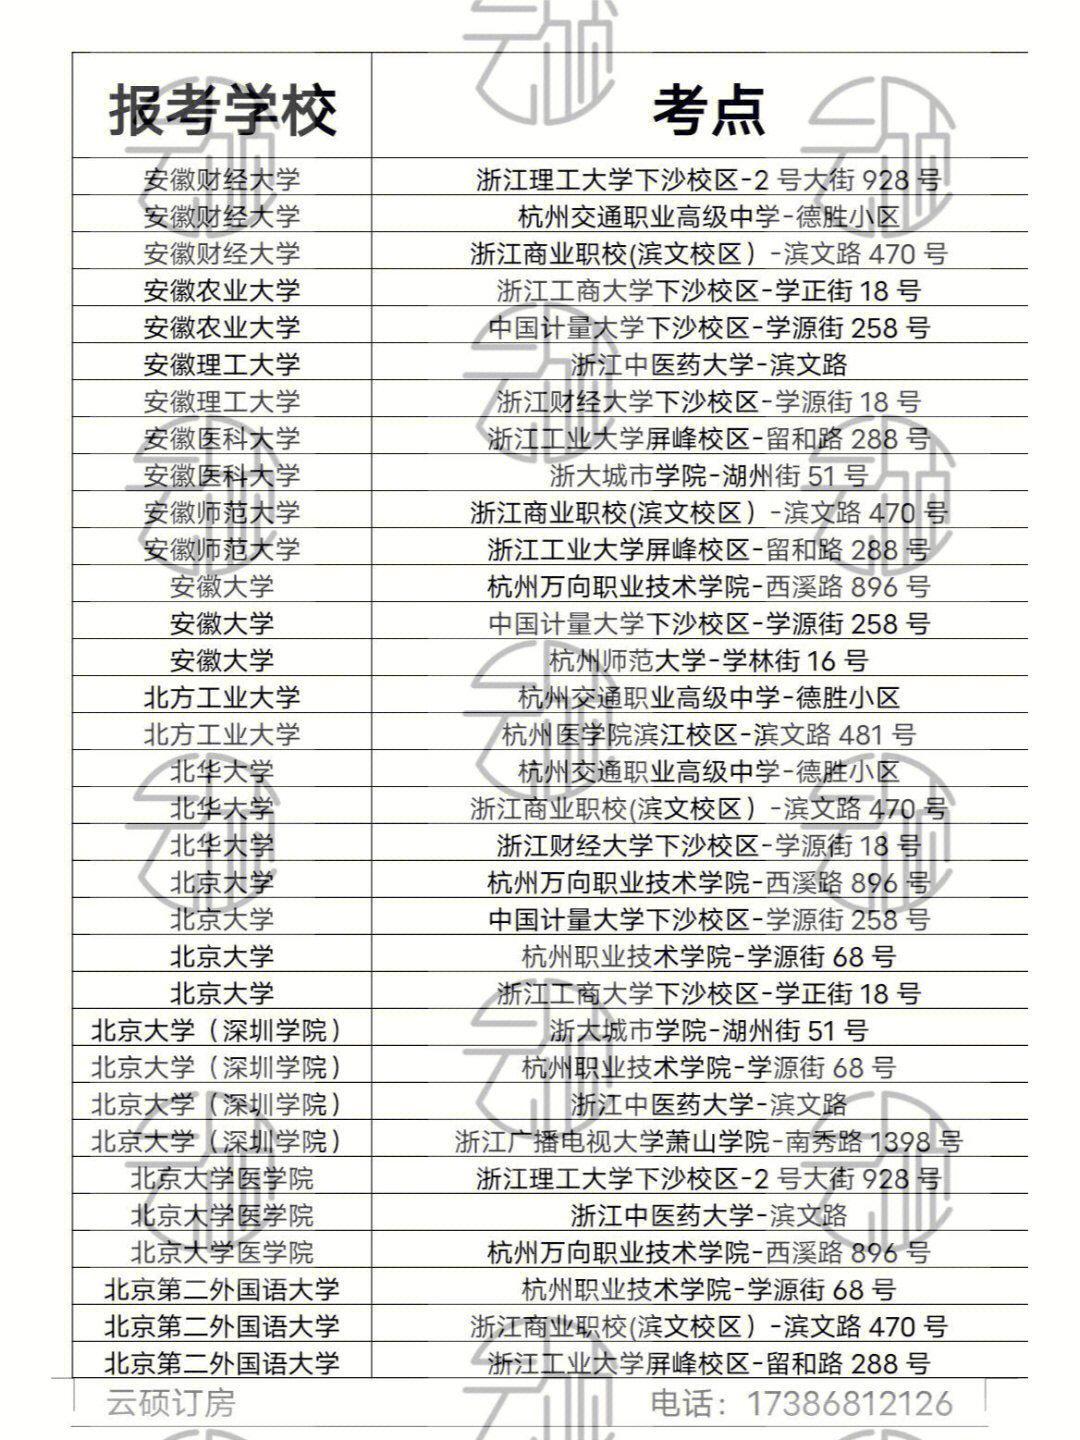 报考学校 考点
安徽财经大学 浙江理工大学下沙校区-2 号大街 928 号
安徽财经大学 杭州交通职业高级中学-德胜小区
安徽财经大学 浙江商业职校(滨文校区）-滨文路 470 号
安徽农业大学 浙江工商大学下沙校区-学正街 18 号
安徽农业大学 中国计量大学下沙校区-学源街 258 号
安徽理工大学 浙江中医药大学-滨文路
安徽理工大学 浙江财经大学下沙校区-学源街 18 号
安徽医科大学 浙江工业大学屏峰校区-留和路 288 号
安徽医科大学 浙大城市学院-湖州街 51 号
安徽师范大学 浙江商业职校(滨文校区）-滨文路 470 号
安徽师范大学 浙江工业大学屏峰校区-留和路 288 号
安徽大学 杭州万向职业技术学院-西溪路 896 号
安徽大学 中国计量大学下沙校区-学源街 258 号
安徽大学 杭州师范大学-学林街 16 号
北方工业大学 杭州交通职业高级中学-德胜小区
北方工业大学 杭州医学院滨江校区-滨文路 481 号
北华大学 杭州交通职业高级中学-德胜小区
北华大学 浙江商业职校(滨文校区）-滨文路 470 号
北华大学 浙江财经大学下沙校区-学源街 18 号
北京大学 杭州万向职业技术学院-西溪路 896 号
北京大学 中国计量大学下沙校区-学源街 258 号
北京大学 杭州职业技术学院-学源街 68 号
北京大学 浙江工商大学下沙校区-学正街 18 号
北京大学（深圳学院） 浙大城市学院-湖州街 51 号
北京大学（深圳学院） 杭州职业技术学院-学源街 68 号
北京大学（深圳学院） 浙江中医药大学-滨文路
北京大学（深圳学院） 浙江广播电视大学萧山学院-南秀路 1398 号
北京大学医学院 浙江理工大学下沙校区-2 号大街 928 号
北京大学医学院 浙江中医药大学-滨文路
北京大学医学院 杭州万向职业技术学院-西溪路 896 号
北京第二外国语大学 杭州职业技术学院-学源街 68 号
北京第二外国语大学 浙江商业职校(滨文校区）-滨文路 470 号
北京第二外国语大学 浙江工业大学屏峰校区-留和路 288 号
云硕订房 电话：17386812126